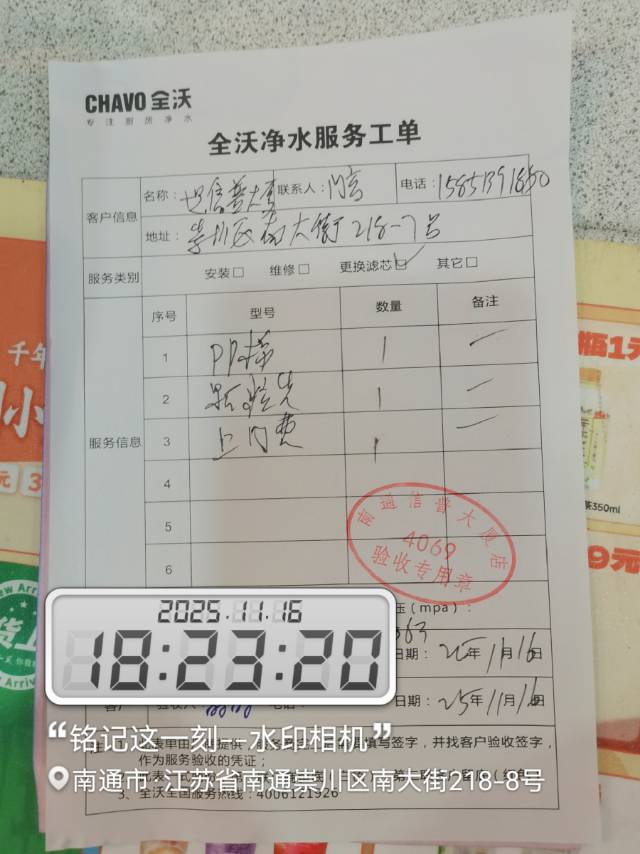 CHAVO 全沃
专注厨房净水
全沃净水服务工单
客户信息
名称：
联系人：
电话：
地址：崇川区南大街218-7号
服务类别
安装□ 维修□ 更换滤芯☑ 其它□
服务信息
序号 型号 数量 备注
1 PP棉 1 —
2 颗粒炭 1 —
3 上门费 1 —
4
5
6
南通信普大厦店
4069
验收专用章
压（mpa）：
日期：25年11月16日
日期：25年11月16日
2025.11.16
18:23:20
“铭记这一刻--水印相机”
填写签字，并找客户验收签字，
作为服务验收的凭证；
南通市·江苏省南通崇川区南大街218-8号
3、全沃全国服务热线：4006121926
千年
小
瓶1元
茶350ml
9元
New Arr
Arriv